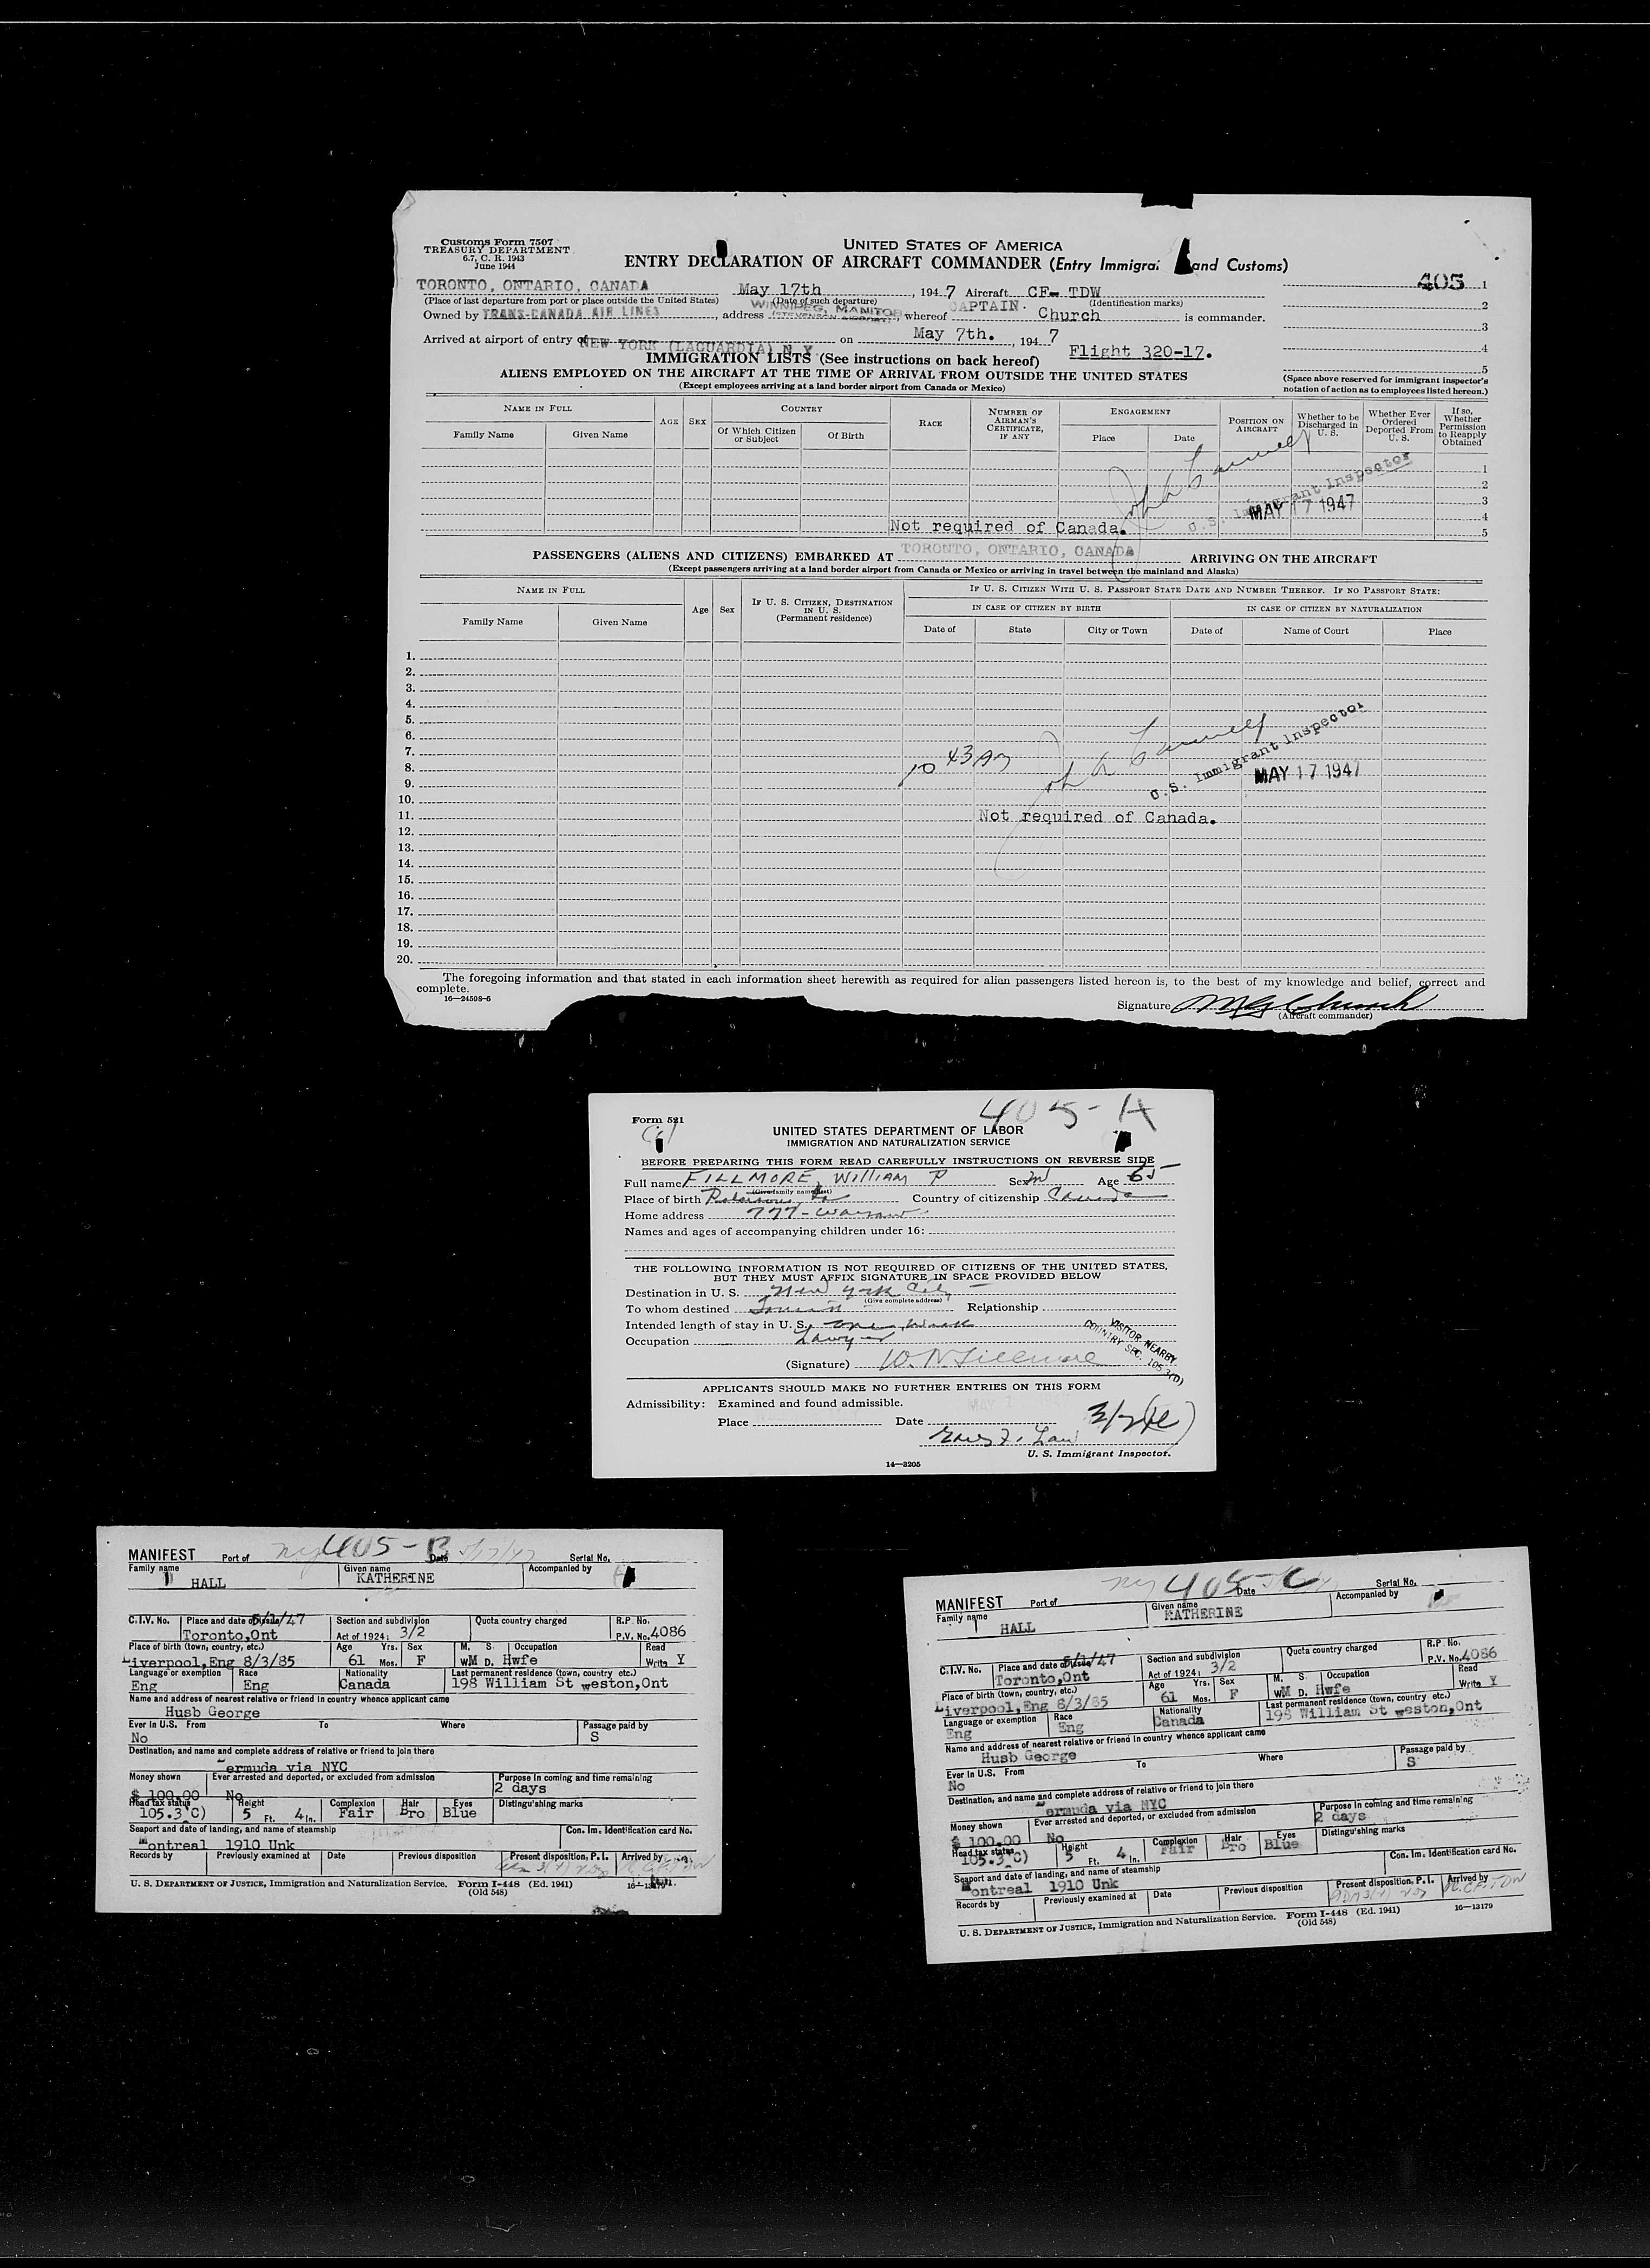 Customs Form 7507
TREASURY DEPARTMENT
6.7, C. R. 1943
June 1944
UNITED STATES OF AMERICA
ENTRY DECLARATION OF AIRCRAFT COMMANDER (Entry Immigra and Customs)
405
TORONTO, ONTARIO, CANADA May 17th , 194 7 Aircraft CF- TDW
(Place of last departure from port or place outside the United States) (Date of such departure) (Identification marks)
Owned by TRANS-CANADA AIR LINES , address WINNIPEG, MANITOB (STEVENSON AIRPORT) , whereof CAPTAIN. Church is commander.
Arrived at airport of entry of NEW YORK (LAGUARDIA) N Y on May 7th. , 194 7 Flight 320-17.
1
2
3
4
5
(Space above reserved for immigrant inspector's notation of action as to employees listed hereon.)
IMMIGRATION LISTS (See instructions on back hereof)
ALIENS EMPLOYED ON THE AIRCRAFT AT THE TIME OF ARRIVAL FROM OUTSIDE THE UNITED STATES
(Except employees arriving at a land border airport from Canada or Mexico)
NAME IN FULL AGE SEX COUNTRY RACE NUMBER OF AIRMAN'S CERTIFICATE, IF ANY ENGAGEMENT POSITION ON AIRCRAFT Whether to be Discharged in U. S. Whether Ever Ordered Deported From U. S. If so, Whether Permission to Reapply Obtained
Family Name Given Name Of Which Citizen or Subject Of Birth Place Date
1
2
3
4
5
U.S. Immigrant Inspector
MAY 17 1947
Not required of Canada.
PASSENGERS (ALIENS AND CITIZENS) EMBARKED AT TORONTO, ONTARIO, CANADA ARRIVING ON THE AIRCRAFT
(Except passengers arriving at a land border airport from Canada or Mexico or arriving in travel between the mainland and Alaska)
NAME IN FULL Age Sex IF U. S. CITIZEN, DESTINATION IN U. S. (Permanent residence) IF U. S. CITIZEN WITH U. S. PASSPORT STATE DATE AND NUMBER THEREOF. IF NO PASSPORT STATE:
IN CASE OF CITIZEN BY BIRTH IN CASE OF CITIZEN BY NATURALIZATION
Family Name Given Name Date of State City or Town Date of Name of Court Place
1.
2.
3.
4.
5.
6.
7.
8.
9.
10.
11.
12.
13.
14.
15.
16.
17.
18.
19.
20.
10 43 AM
U.S. Immigrant Inspector
MAY 17 1947
Not required of Canada.
The foregoing information and that stated in each information sheet herewith as required for alien passengers listed hereon is, to the best of my knowledge and belief, correct and
complete.
16—24598-5
Signature Church
(Aircraft commander)
405-A
Form 521
UNITED STATES DEPARTMENT OF LABOR
IMMIGRATION AND NATURALIZATION SERVICE
BEFORE PREPARING THIS FORM READ CAREFULLY INSTRUCTIONS ON REVERSE SIDE
Full name FILLMORE, William P Sex M Age 65
(Give family name first)
Place of birth Country of citizenship Canada
Home address 777-
Names and ages of accompanying children under 16:
THE FOLLOWING INFORMATION IS NOT REQUIRED OF CITIZENS OF THE UNITED STATES,
BUT THEY MUST AFFIX SIGNATURE IN SPACE PROVIDED BELOW
Destination in U. S. New York City
(Give complete address)
To whom destined Relationship
Intended length of stay in U. S. one week
Occupation Lawyer
VISITOR NEARBY
COUNTRY SEC. 105.3(D)
(Signature) W. P. Fillmore
APPLICANTS SHOULD MAKE NO FURTHER ENTRIES ON THIS FORM
Admissibility: Examined and found admissible.
Place Date
3/2
U. S. Immigrant Inspector.
14—3205
MANIFEST Port of NY 405-B Date 5/17/47 Serial No.
Family name HALL Given name KATHERINE Accompanied by
C.I.V. No. Place and date of issue 5/1/47 Toronto,Ont Section and subdivision Act of 1924: 3/2 Quota country charged R.P. No. P.V. No. 4086
Place of birth (town, country, etc.) Liverpool,Eng 8/3/85 Age 61 Yrs. Mos. Sex F M. S. WM D. Occupation Hwfe Read Write Y
Language or exemption Eng Race Eng Nationality Canada Last permanent residence (town, country etc.) 198 William St weston,Ont
Name and address of nearest relative or friend in country whence applicant came
Husb George
Ever in U.S. From To Where Passage paid by
No S
Destination, and name and complete address of relative or friend to join there
Bermuda via NYC
Money shown $ 100.00 Ever arrested and deported, or excluded from admission No Purpose in coming and time remaining 2 days
Head tax status 105.3 C) Height 5 Ft. 4 In. Complexion Fair Hair Bro Eyes Blue Distinguishing marks
Seaport and date of landing, and name of steamship Con. Im. Identification card No.
Montreal 1910 Unk
Records by Previously examined at Date Previous disposition Present disposition, P. I. Arrived by
U. S. DEPARTMENT OF JUSTICE, Immigration and Naturalization Service. Form I-448 (Ed. 1941)
(Old 548)
16—13179
MANIFEST Port of NY 405-C Date Serial No.
Family name HALL Given name KATHERINE Accompanied by
C.I.V. No. Place and date of issue 5/1/47 Toronto,Ont Section and subdivision Act of 1924: 3/2 Quota country charged R.P. No. P.V. No. 4086
Place of birth (town, country, etc.) Liverpool,Eng 8/3/85 Age 61 Yrs. Mos. Sex F M. S. WM D. Occupation Hwfe Read Write Y
Language or exemption Eng Race Eng Nationality Canada Last permanent residence (town, country, etc.) 198 William St weston,Ont
Name and address of nearest relative or friend in country whence applicant came
Husb George
Ever in U.S. From To Where Passage paid by
No S
Destination, and name and complete address of relative or friend to join there
Bermuda via NYC
Money shown $ 100.00 Ever arrested and deported, or excluded from admission No Purpose in coming and time remaining 2 days
Head tax status 105.3 C) Height 5 Ft. 4 In. Complexion Fair Hair Bro Eyes Blue Distinguishing marks
Seaport and date of landing, and name of steamship Con. Im. Identification card No.
Montreal 1910 Unk
Records by Previously examined at Date Previous disposition Present disposition, P. I. Arrived by
U. S. DEPARTMENT OF JUSTICE, Immigration and Naturalization Service. Form I-448 (Ed. 1941)
(Old 548)
16—13179